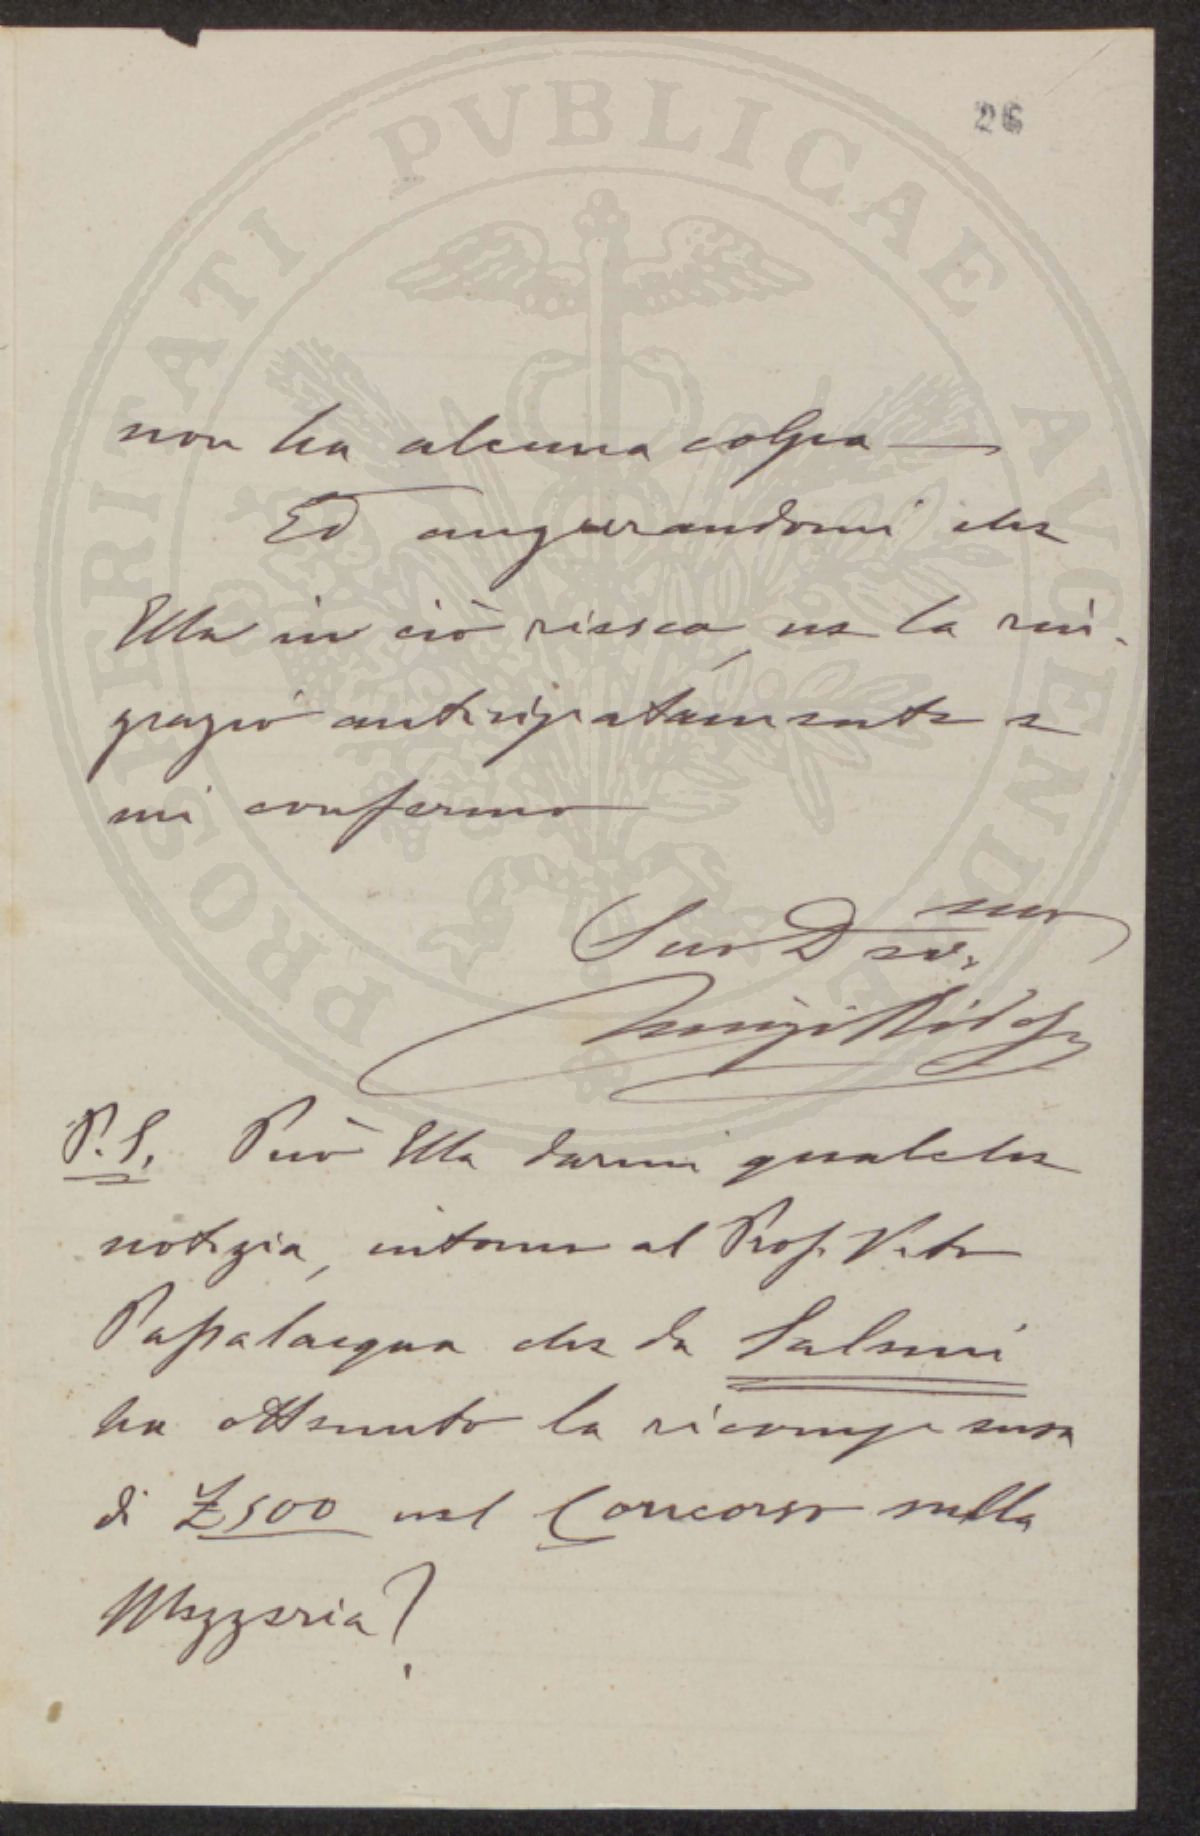 PROSPERITATI PUBLICAE AVGENDAE
26
non ha alcuna colpa —
Ed augurandomi che
Ella in ciò riesca, ne la rin-
grazio anticipatamente e
mi confermo
Suo Dev.mo
Luigi
P.S. Può Ella darmi qualche
notizia, intorno al Prof. Vito
Passalacqua che da Salemi
ha ottenuto la ricompensa
di £500 nel Concorso sulla
Mezzeria?